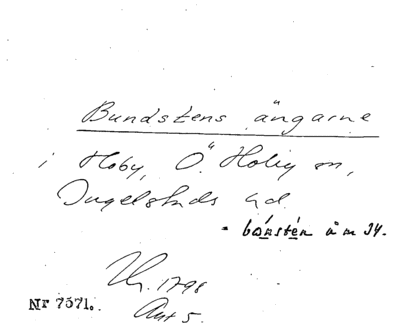 Bundstens ängarne
i Hoby, Ö. Hoby sn,
Ingelstads hd.
- bónstén å m 34.
1798
Akt 5.
Nr 7571.